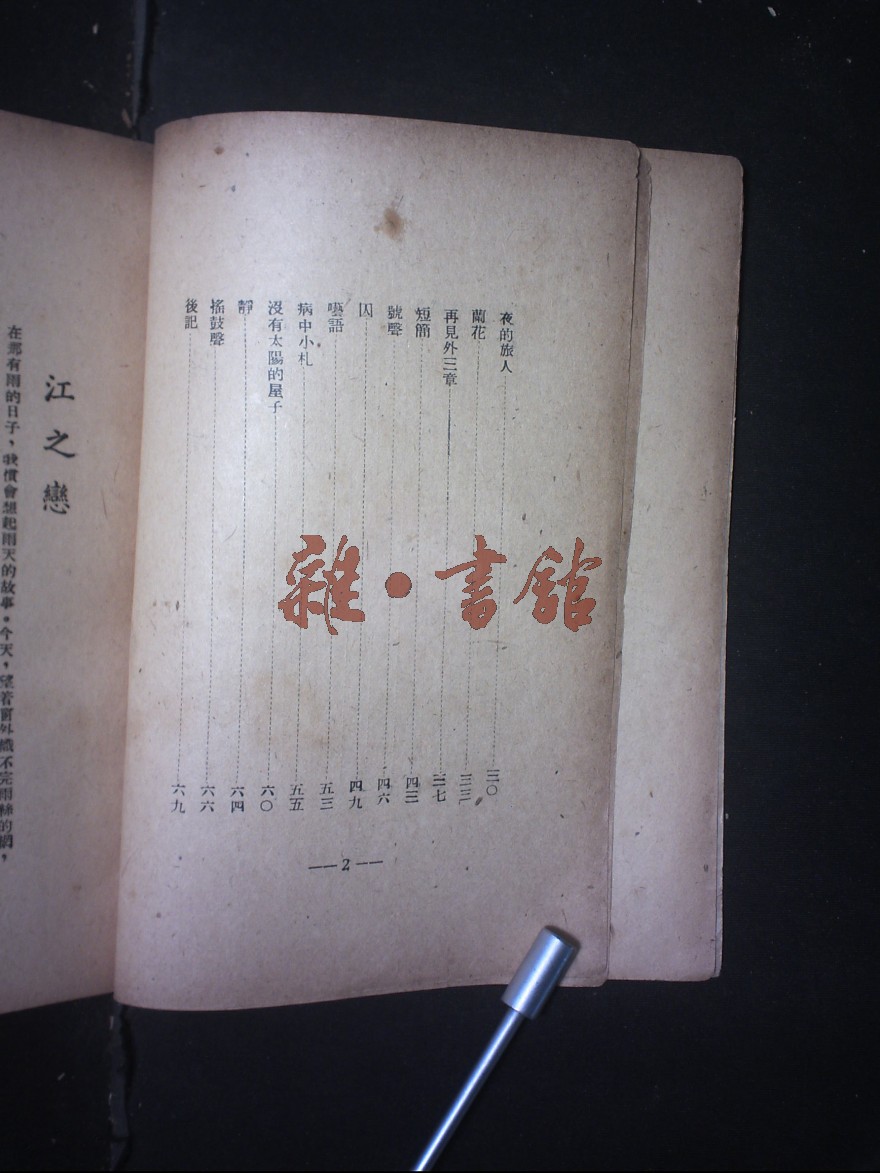 夜的旅人 三〇
蘭花 三三
再見外三章 三七
短簡 四三
號聲 四六
囚 四九
囈語 五三
病中小札 五五
沒有太陽的屋子 六〇
靜 六四
搖鼓聲 六六
後記 六九
—2—
江之戀
在那有雨的日子，我慣會想起雨天的故事。今天，望着窗外織不完雨絲的網，
雜·書館